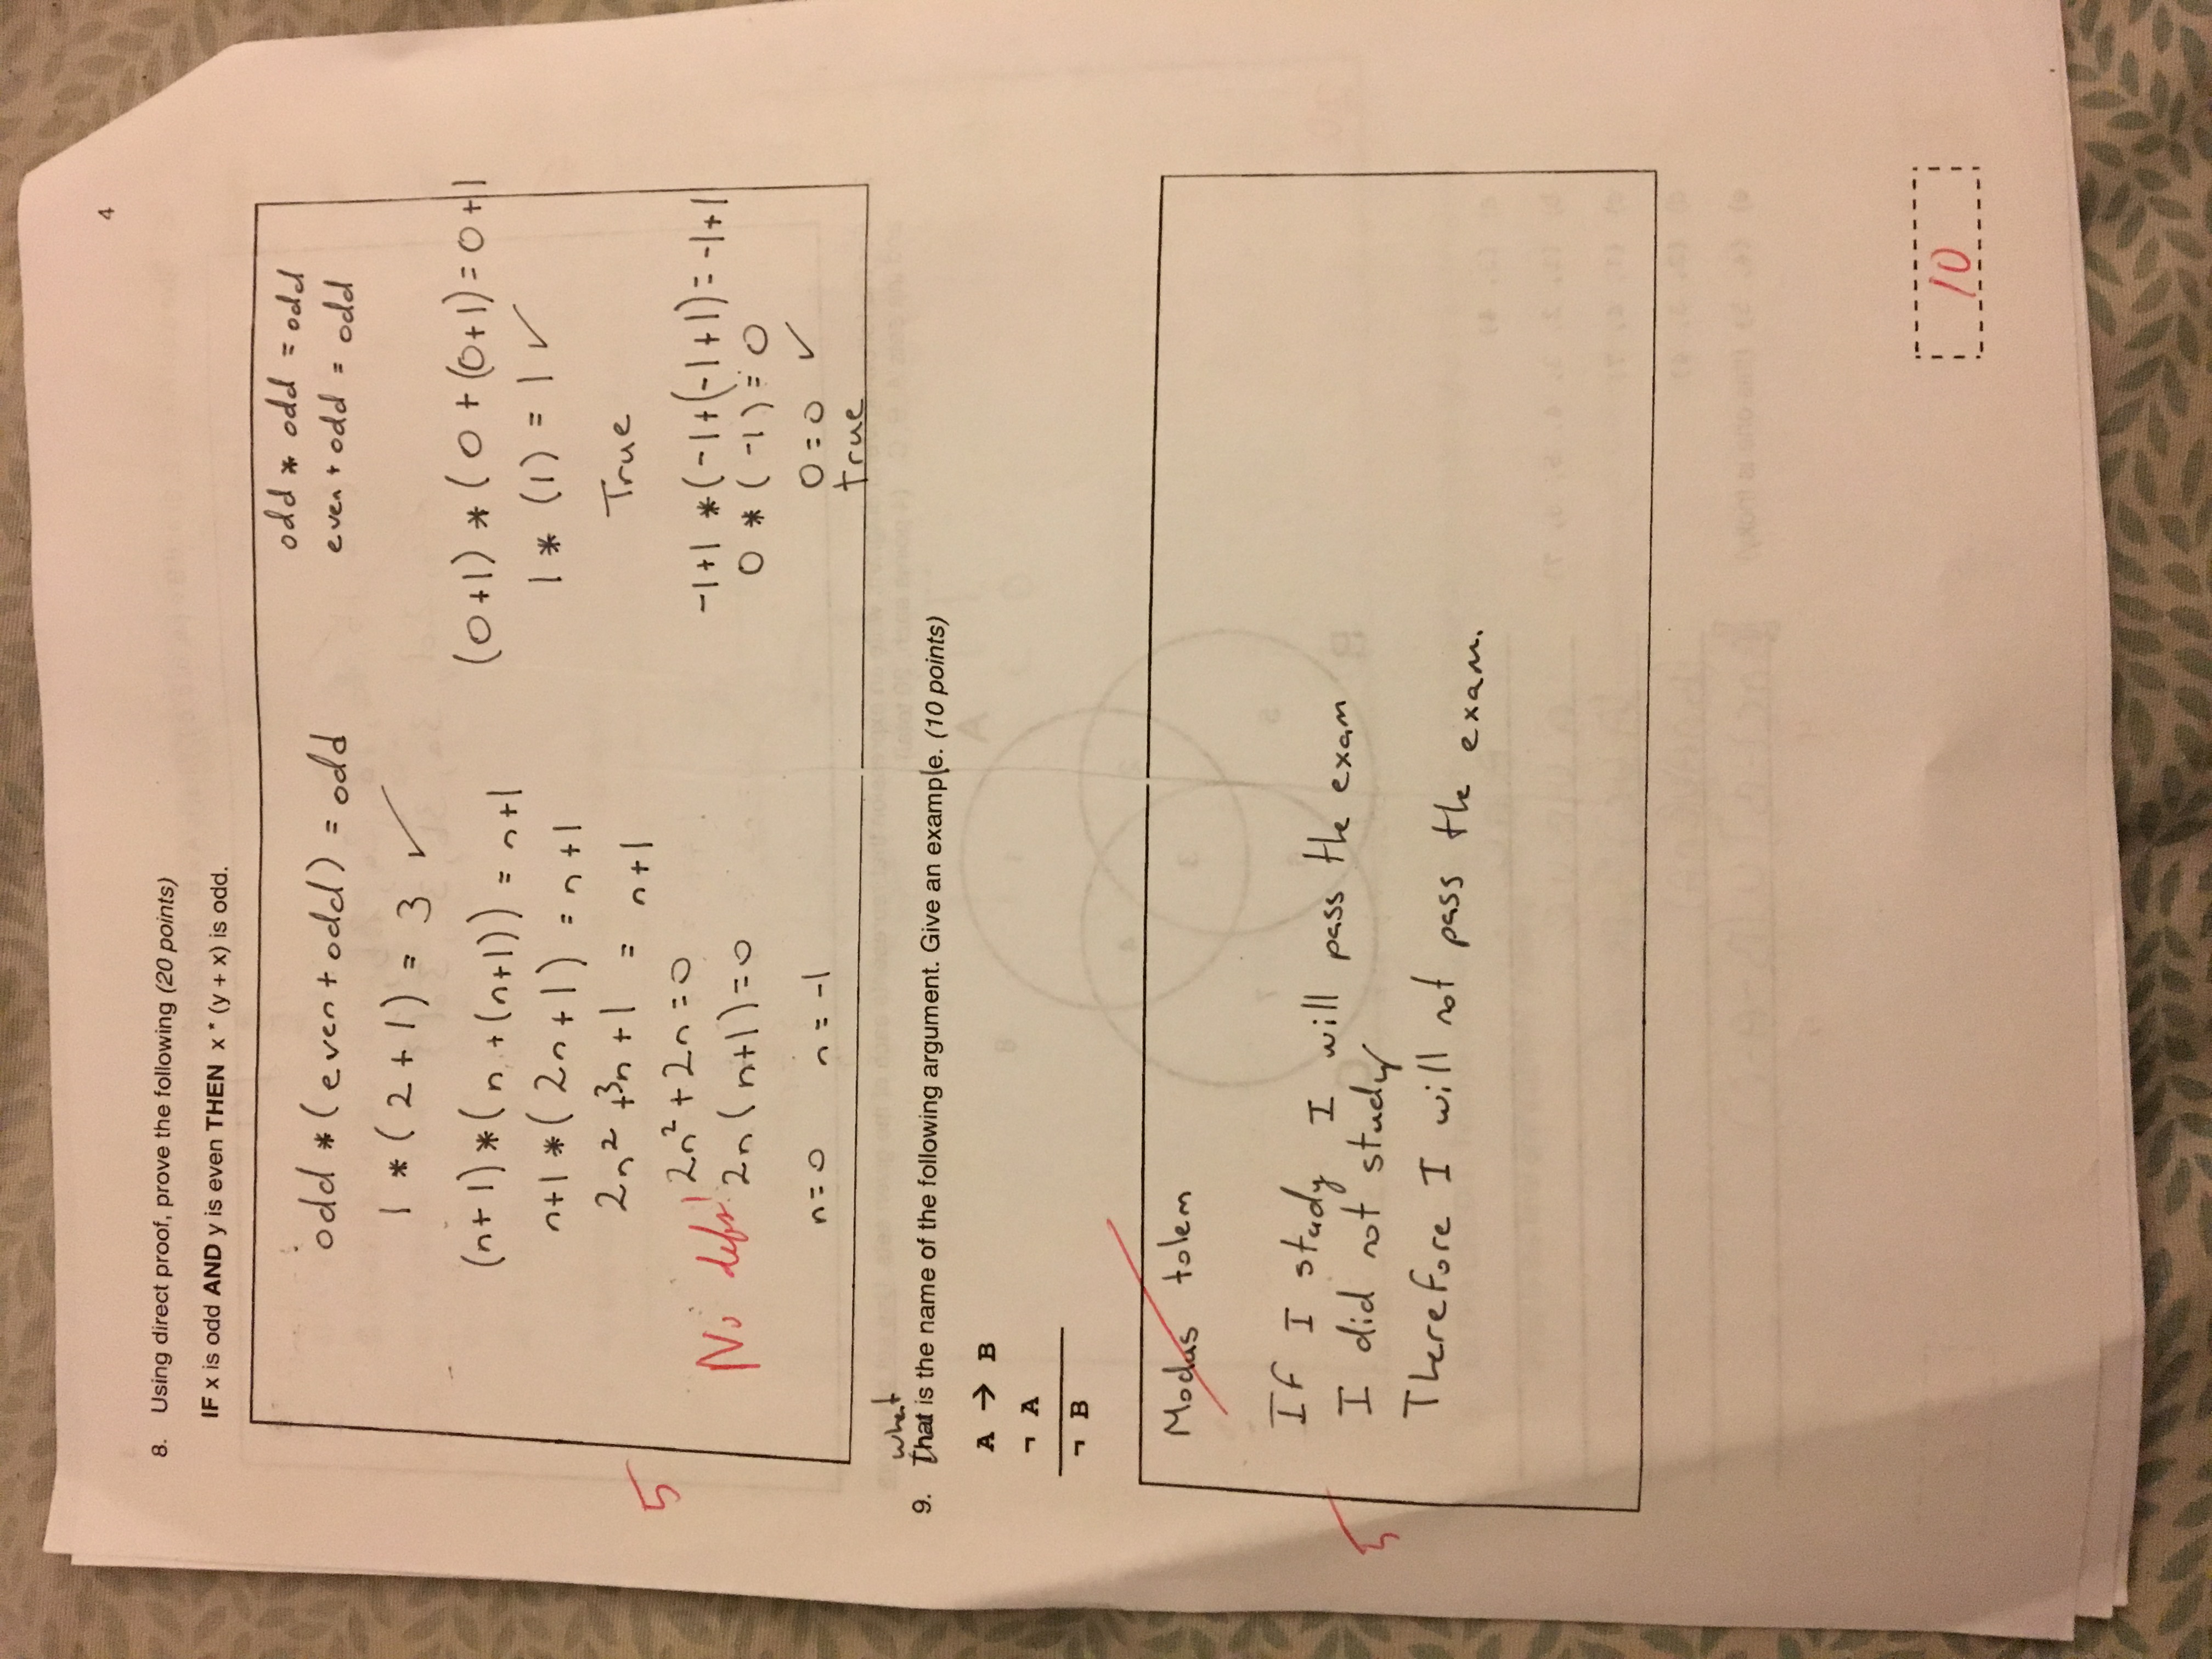 4
8. Using direct proof, prove the following (20 points)
IF x is odd AND y is even THEN x * (y + x) is odd.
odd * odd = odd
even + odd = odd
odd * (even + odd) = odd
1 * (2 + 1) = 3 ✓
(n+1) * (n + (n+1)) = n+1
n+1 * (2n+1) = n+1
2n² + 3n + 1 = n+1
2n² + 2n = 0
2n(n+1) = 0
n = 0 n = -1
(0+1) * (0 + (0+1) = 0+1
1 * (1) = 1 ✓
True
-1+1 * (-1+(-1+1) = -1+1
0 * (-1) = 0
0 = 0 ✓
true
5
No defs!
what
9. That is the name of the following argument. Give an example. (10 points)
A → B
¬ A
¬ B
Modus tolem
If I study I will pass the exam
I did not study
Therefore I will not pass the exam.
5
10